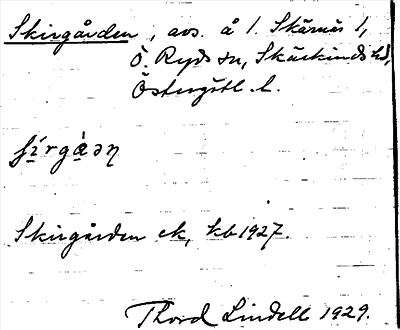 Skirgården, avs. å 1. Skärnäs 1,
Ö. Ryds sn, Skärkinds hd,
Östergötl. l.
Skirgården ek, kb 1927.
Thord Lindell 1929.